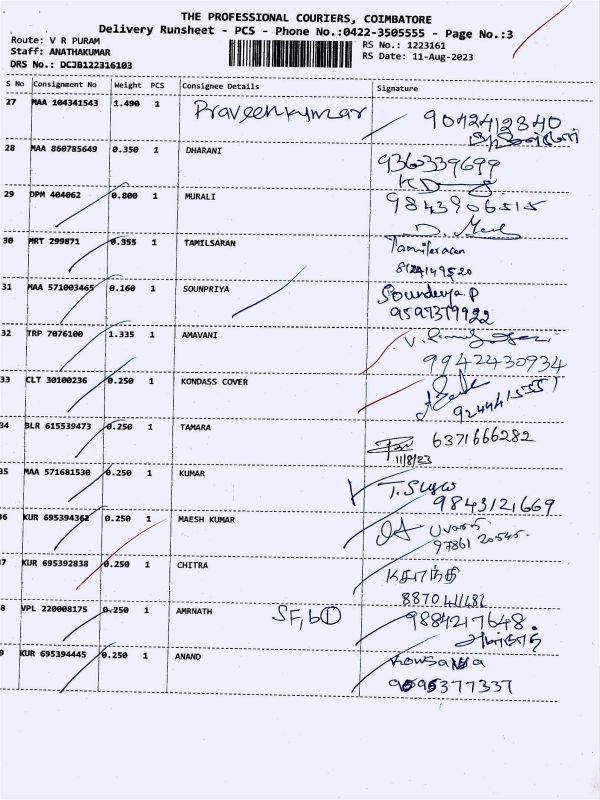 THE PROFESSIONAL COURIERS, COIMBATORE
Delivery Runsheet - PCS - Phone No.:0422-3505555 - Page No.:3
Route: V R PURAM
Staff: ANATHAKUMAR
DRS No.: DCJB122316103
RS No.: 1223161
RS Date: 11-Aug-2023
S No Consignment No Weight PCS Consignee Details Signature
27 MAA 104341543 1.490 1 Praveenkumar 9042412340
28 MAA 860785649 0.350 1 DHARANI 9360339699
29 DPM 404062 0.800 1 MURALI 9843906515
30 MRT 299871 0.355 1 TAMILSARAN Tamilsaran
8124149520
31 MAA 571003465 0.160 1 SOUNPRIYA Soundarya P
9597379922
32 TRP 7076100 1.335 1 AMAVANI
9942430934
33 CLT 30100236 0.250 1 KONDASS COVER
9244415551
34 BLR 615539473 0.250 1 TAMARA 6371666282
11/8/23
35 MAA 571681530 0.250 1 KUMAR
9843121669
36 KUR 695394362 0.250 1 MAESH KUMAR
97861 20545
37 KUR 695392838 0.250 1 CHITRA சாந்தி
8870411482
8 VPL 220008175 0.250 1 AMRNATH SF,b① 9884217648.
9 KUR 695394445 0.250 1 ANAND Kowsalya
9095377337